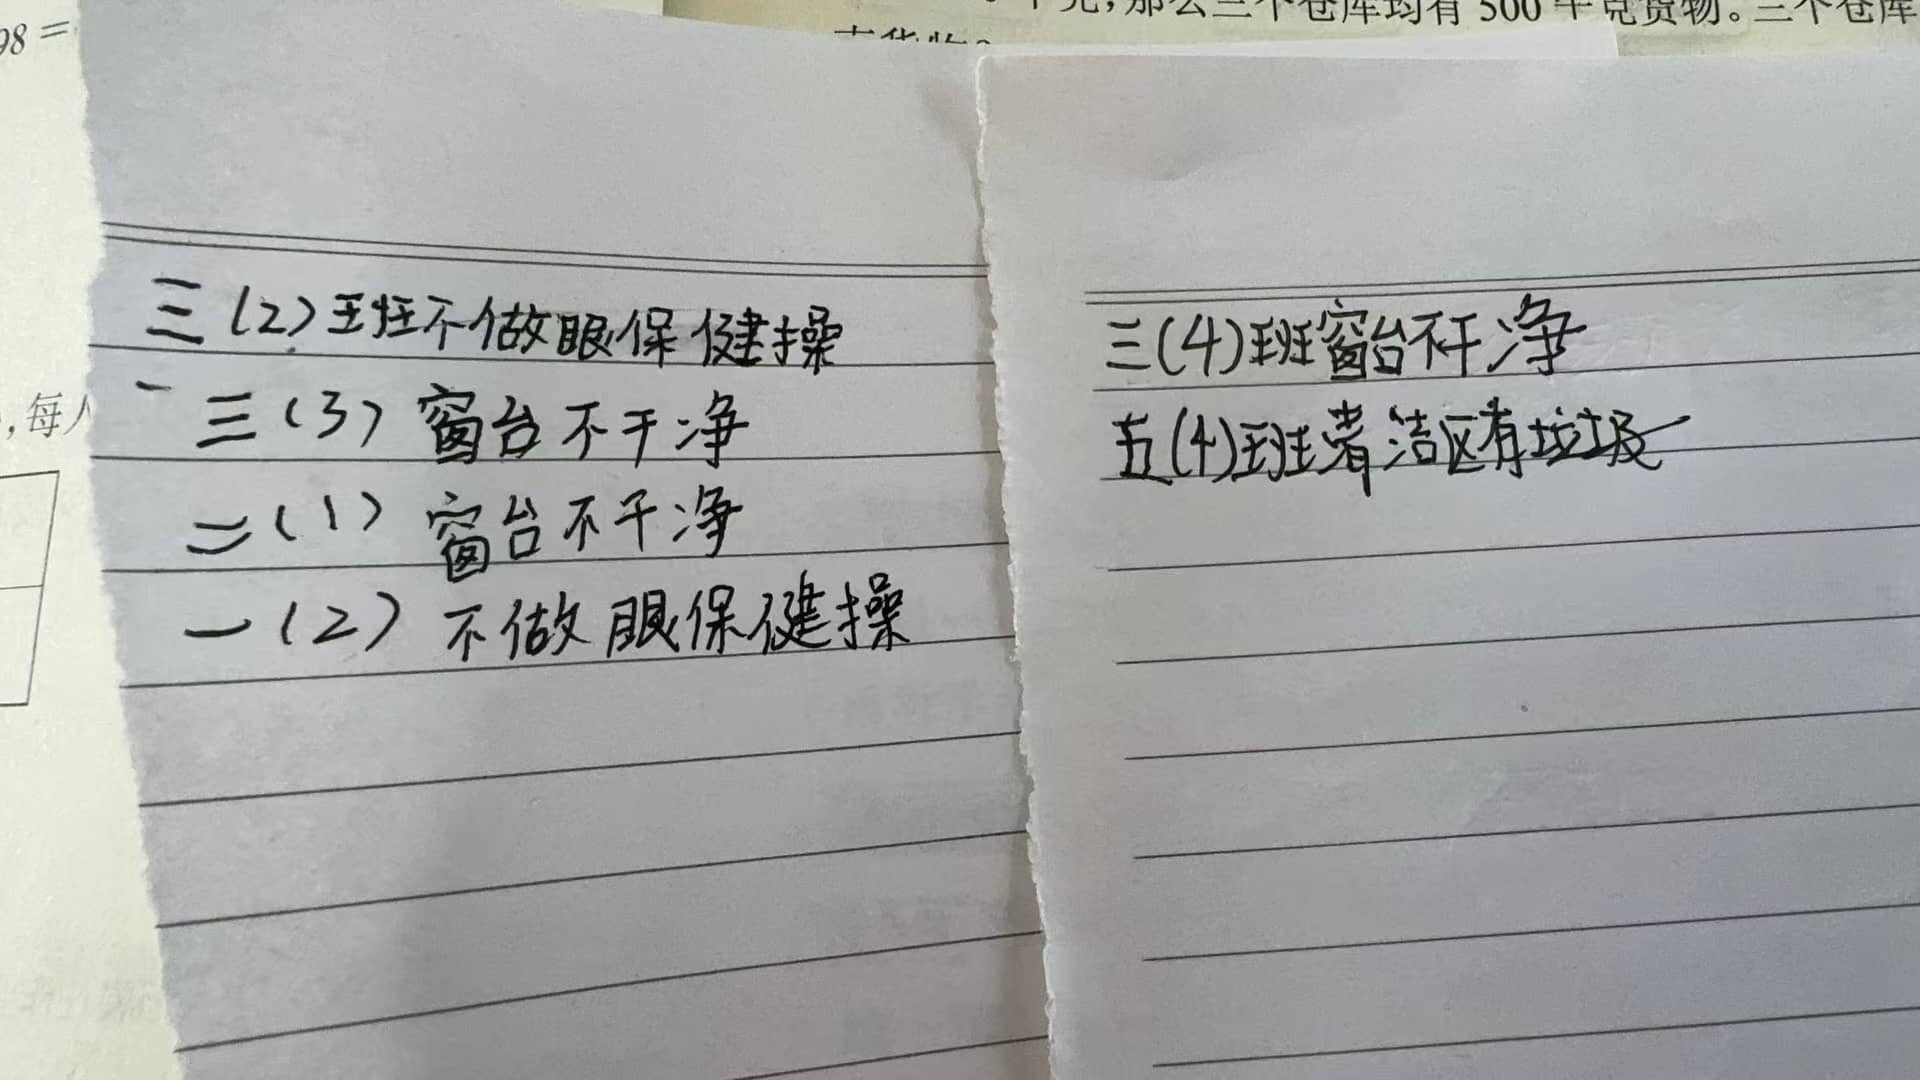 98=
千克,那么三个仓库均有500千克货物。三个仓库
,每人
三(2)班不做眼保健操
三(3)窗台不干净
二(1)窗台不干净
一(2)不做眼保健操
三(4)班窗台不干净
五(4)班清洁区有垃圾